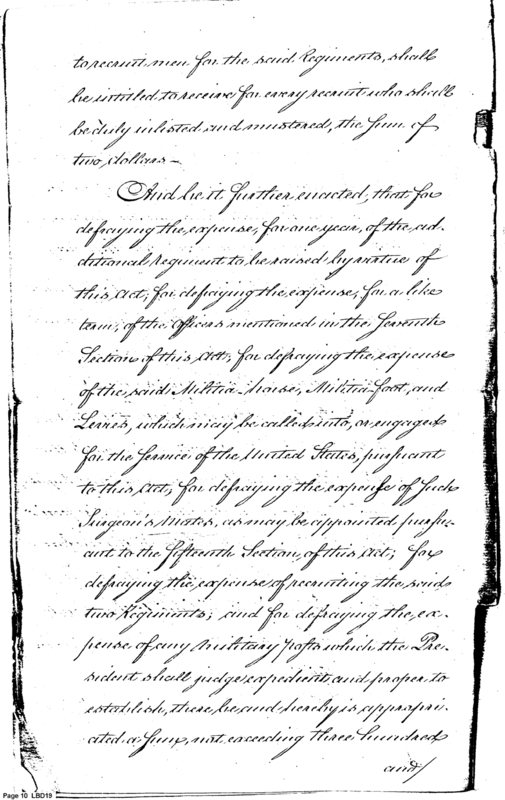 to recruit men for the said Regiments, shall
be intitled to receive for every recruit who shall
be duly inlisted and mustered, the sum of
two dollars —
And be it further enacted, that for
defraying the expense, for one year, of the ad-
ditional regiment to be raised by virtue of
this Act; for defraying the expense, for a like
term, of the Officers mentioned in the Seventh
Section of this Act; for defraying the expense
of the said Militia-horse, Militia-foot, and
Levies, which may be called into, or engaged
for the Service of the United States, pursuant
to this Act; for defraying the expense of such
Surgeon's Mates, as may be appointed pursu-
ant to the fifteenth Section, of this Act; for
defraying the expense of recruiting the said
two Regiments; and for defraying the ex-
pense of any military posts which the Pre-
sident shall judge expedient and proper to
establish, there be and hereby is appropri-
ated a sum, not exceeding three hundred
and/
Page 10 LBD19